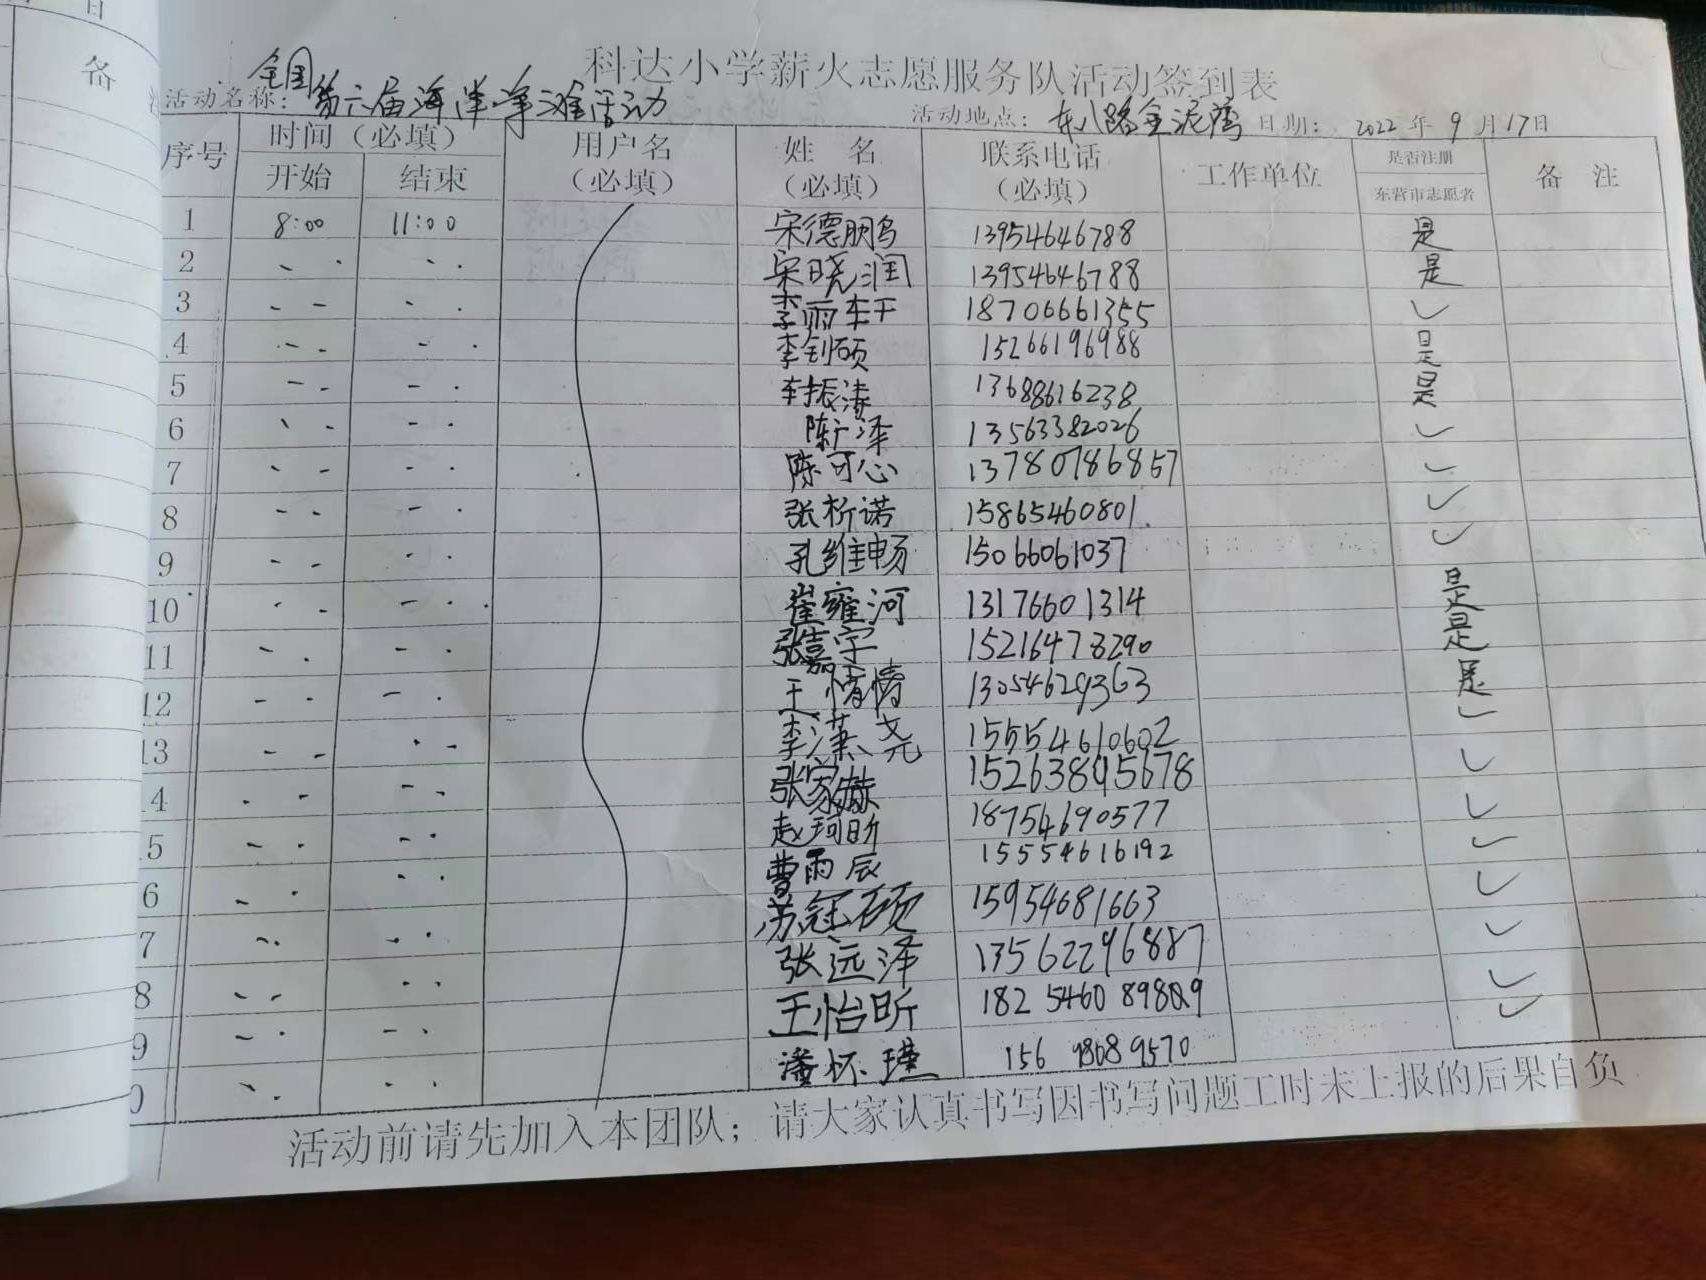 备
科达小学薪火志愿服务队活动签到表
活动名称: 全国第六届海洋净滩活动 活动地点: 东八路金泥湾 日期: 2022年9月17日
序号 时间(必填) 用户名(必填) 姓名(必填) 联系电话(必填) 工作单位 是否注册东营市志愿者 备注
开始 结束
1 8:00 11:00 宋德鹏 13954646788 是
2 宋晓润 13954646788 是
3 18706661355 ✓
4 李钊硕 15266196988 是
5 13688616238 是
6 陈广泽 13563382026 ✓
7 陈可心 13780786857 ✓
8 张析诺 15865460801 ✓
9 孔维畅 15066061037 ✓
10 崔雍河 13176601314 是
11 张嘉宇 15216478290 是
12 王情情 13054629363 是
13 李潇尧 15554610602 ✓
4 张家赫 15263895678 ✓
5 赵珂昕 18754690577 ✓
6 曹雨辰 15554616192 ✓
7 苏冠硕 15954681663 ✓
8 张远泽 13562296887 ✓
9 王怡昕 ✓
0 潘怀瑾 ✓
活动前请先加入本团队；请大家认真书写因书写问题工时未上报的后果自负